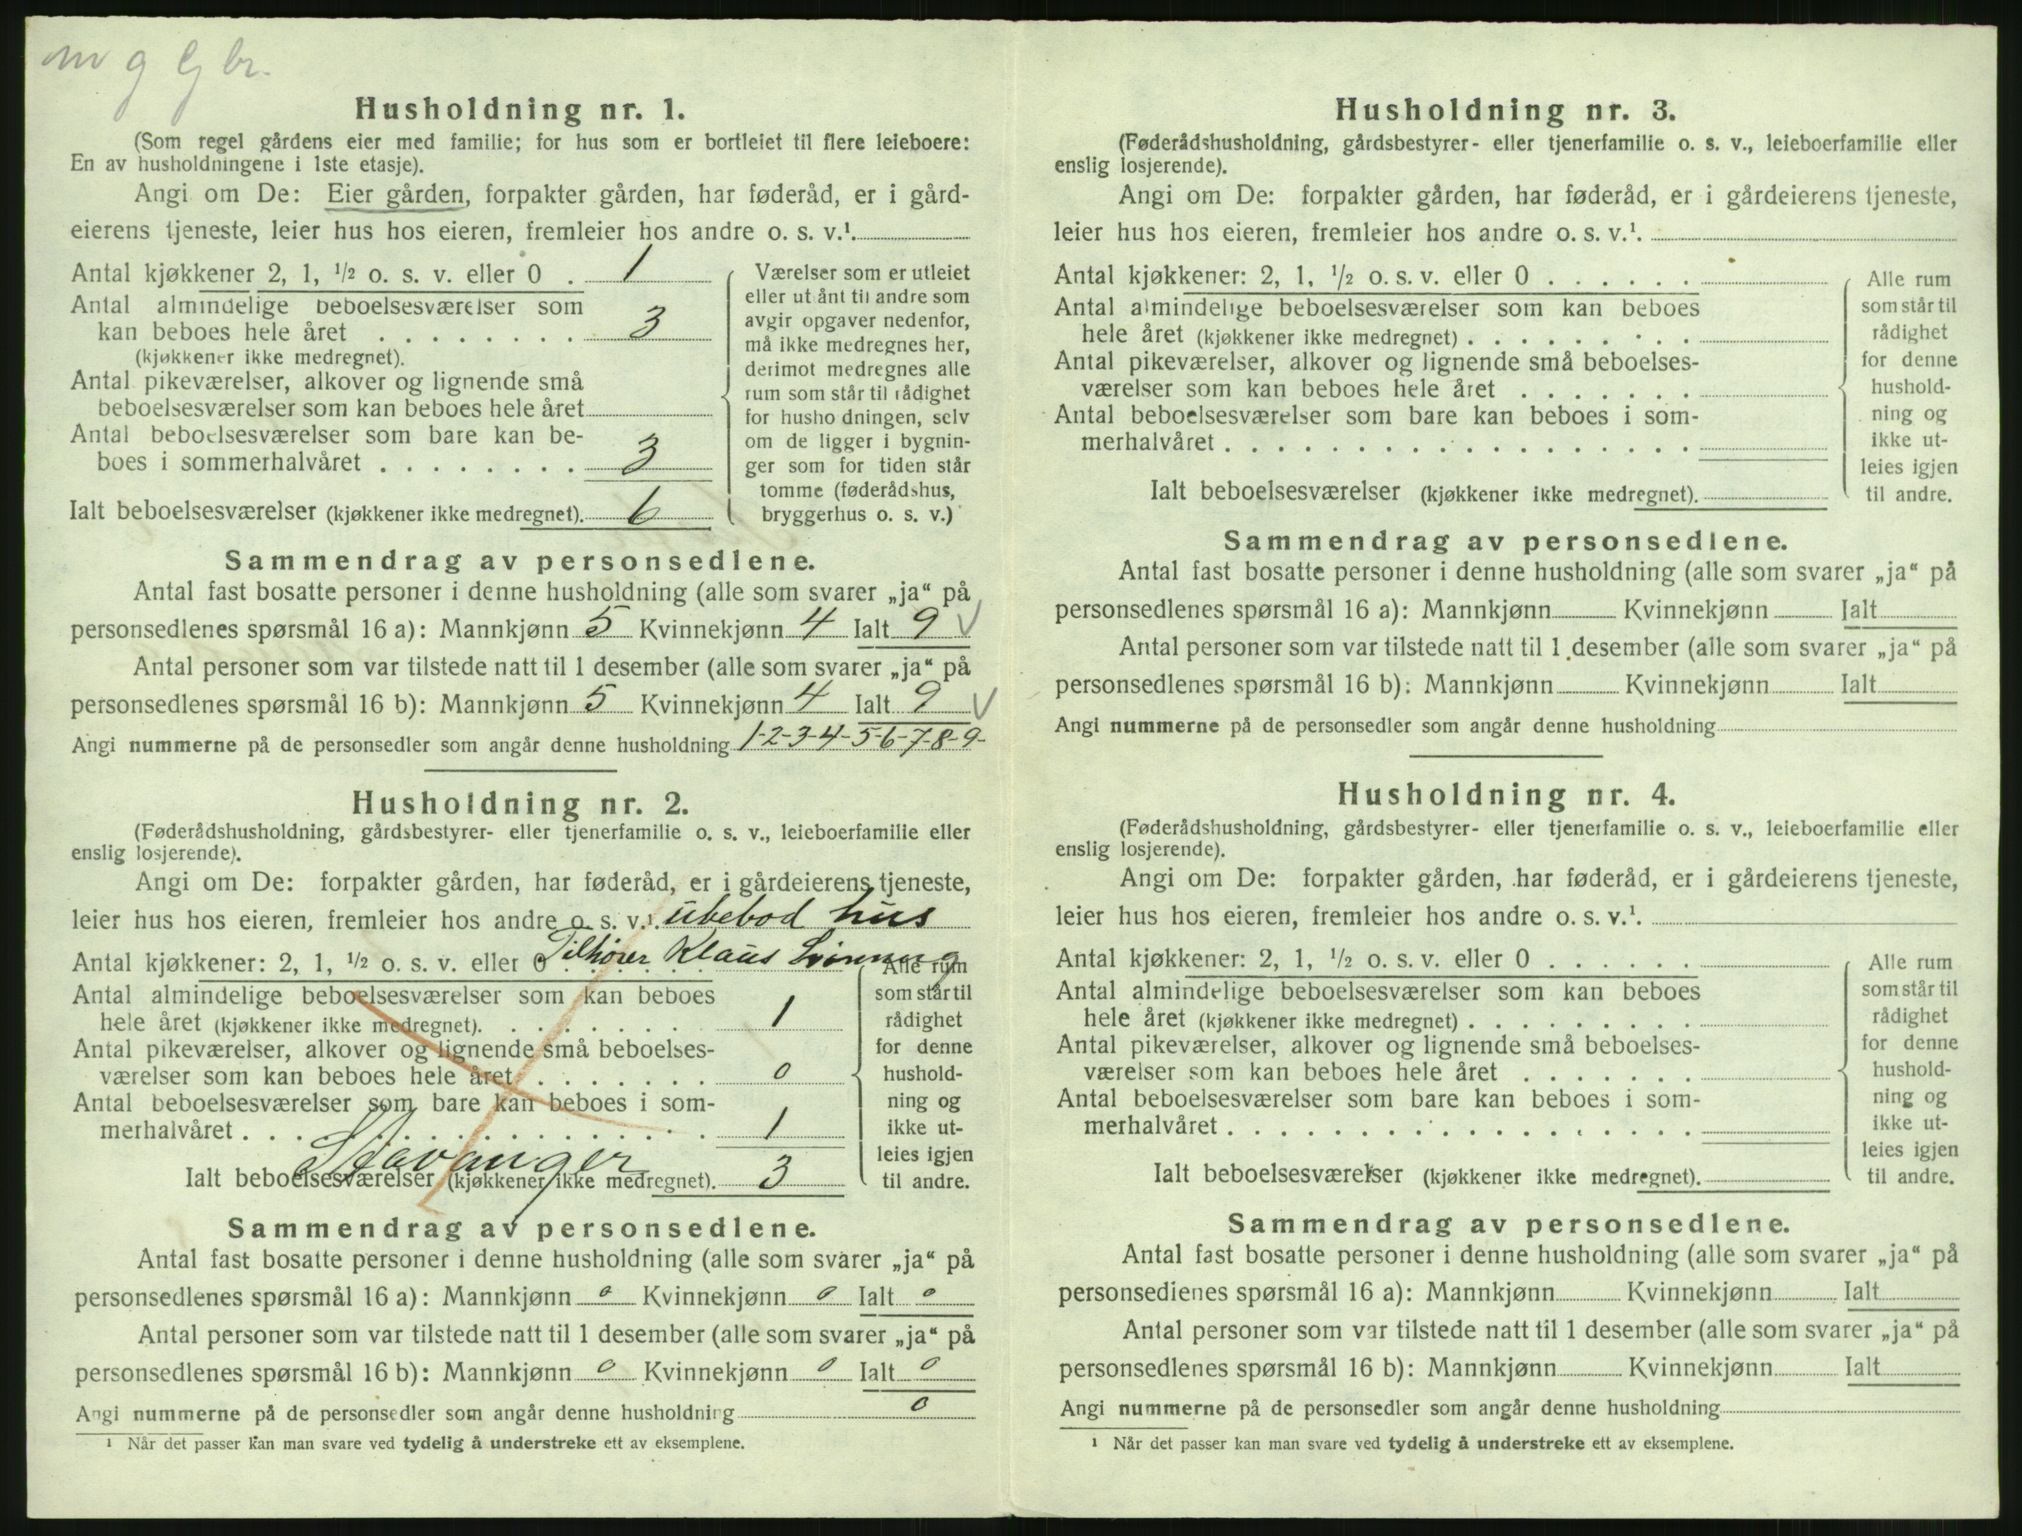 m g g br.
Husholdning nr. 1.
(Som regel gårdens eier med familie; for hus som er bortleiet til flere leieboere:
En av husholdningene i 1ste etasje).
Angi om De: Eier gården, forpakter gården, har føderåd, er i gård-
eierens tjeneste, leier hus hos eieren, fremleier hos andre o. s. v.¹.
Antal kjøkkener 2, 1, ½ o. s. v. eller 0 . 1
Antal almindelige beboelsesværelser som
kan beboes hele året . . . . . . . . 3
(kjøkkener ikke medregnet).
Antal pikeværelser, alkover og lignende små
beboelsesværelser som kan beboes hele året
Antal beboelsesværelser som bare kan be-
boes i sommerhalvåret . . . . . . . 3
Ialt beboelsesværelser (kjøkkener ikke medregnet). 6
Værelser som er utleiet
eller utlånt til andre som
avgir opgaver nedenfor,
må ikke medregnes her,
derimot medregnes alle
rum som står til rådighet
for husholdningen, selv
om de ligger i bygnin-
ger som for tiden står
tomme (føderådshus,
bryggerhus o. s. v.)
Sammendrag av personsedlene.
Antal fast bosatte personer i denne husholdning (alle som svarer „ja“ på
personsedlenes spørsmål 16 a): Mannkjønn 5 Kvinnekjønn 4 Ialt 9 V
Antal personer som var tilstede natt til 1 desember (alle som svarer „ja“ på
personsedlenes spørsmål 16 b): Mannkjønn 5 Kvinnekjønn 4 Ialt 9 V
Angi nummerne på de personsedler som angår denne husholdning 1-2-3-4-5-6-7-8-9-
Husholdning nr. 2.
(Føderådshusholdning, gårdsbestyrer- eller tjenerfamilie o. s. v., leieboerfamilie eller
enslig losjerende).
Angi om De: forpakter gården, har føderåd, er i gårdeierens tjeneste,
leier hus hos eieren, fremleier hos andre o. s. v.¹. ubebod hus
Tilhører Klaus
Antal kjøkkener: 2, 1, ½ o. s. v. eller 0 . . . . . .
Antal almindelige beboelsesværelser som kan beboes
hele året (kjøkkener ikke medregnet). . . . . . . . 1
Antal pikeværelser, alkover og lignende små beboelses-
værelser som kan beboes hele året . . . . . . . 0
Antal beboelsesværelser som bare kan beboes i som-
merhalvåret . . . . . . . . . . . . . . . . 1
Stavanger
Ialt beboelsesværelser (kjøkkener ikke medregnet). 3
Alle rum
som står til
rådighet
for denne
hushold-
ning og
ikke ut-
leies igjen
til andre.
Sammendrag av personsedlene.
Antal fast bosatte personer i denne husholdning (alle som svarer „ja“ på
personsedlenes spørsmål 16 a): Mannkjønn 0 Kvinnekjønn 0 Ialt 0
Antal personer som var tilstede natt til 1 desember (alle som svarer „ja“ på
personsedlenes spørsmål 16 b): Mannkjønn 0 Kvinnekjønn 0 Ialt 0
Angi nummerne på de personsedler som angår denne husholdning 0
¹ Når det passer kan man svare ved tydelig å understreke ett av eksemplene.
Husholdning nr. 3.
(Føderådshusholdning, gårdsbestyrer- eller tjenerfamilie o. s. v., leieboerfamilie eller
enslig losjerende).
Angi om De: forpakter gården, har føderåd, er i gårdeierens tjeneste,
leier hus hos eieren, fremleier hos andre o. s. v.¹.
Antal kjøkkener: 2, 1, ½ o. s. v. eller 0 . . . . . .
Antal almindelige beboelsesværelser som kan beboes
hele året (kjøkkener ikke medregnet) . . . . . . . .
Antal pikeværelser, alkover og lignende små beboelses-
værelser som kan beboes hele året . . . . . . .
Antal beboelsesværelser som bare kan beboes i som-
merhalvåret . . . . . . . . . . . . . . . . .
Ialt beboelsesværelser (kjøkkener ikke medregnet).
Alle rum
som står til
rådighet
for denne
hushold-
ning og
ikke ut-
leies igjen
til andre.
Sammendrag av personsedlene.
Antal fast bosatte personer i denne husholdning (alle som svarer „ja“ på
personsedlenes spørsmål 16 a): Mannkjønn Kvinnekjønn Ialt
Antal personer som var tilstede natt til 1 desember (alle som svarer „ja“ på
personsedlenes spørsmål 16 b): Mannkjønn Kvinnekjønn Ialt
Angi nummerne på de personsedler som angår denne husholdning
Husholdning nr. 4.
(Føderådshusholdning, gårdsbestyrer- eller tjenerfamilie o. s. v., leieboerfamilie eller
enslig losjerende).
Angi om De: forpakter gården, har føderåd, er i gårdeierens tjeneste,
leier hus hos eieren, fremleier hos andre o. s. v.¹.
Antal kjøkkener: 2, 1, ½ o. s. v. eller 0 . . . . . .
Antal almindelige beboelsesværelser som kan beboes
hele året (kjøkkener ikke medregnet) . . . . . . . .
Antal pikeværelser, alkover og lignende små beboelses-
værelser som kan beboes hele året . . . . . . .
Antal beboelsesværelser som bare kan beboes i som-
merhalvåret . . . . . . . . . . . . . . . . .
Ialt beboelsesværelser (kjøkkener ikke medregnet).
Alle rum
som står til
rådighet
for denne
hushold-
ning og
ikke ut-
leies igjen
til andre.
Sammendrag av personsedlene.
Antal fast bosatte personer i denne husholdning (alle som svarer „ja“ på
personsedlenes spørsmål 16 a): Mannkjønn Kvinnekjønn Ialt
Antal personer som var tilstede natt til 1 desember (alle som svarer „ja“ på
personsedlenes spørsmål 16 b): Mannkjønn Kvinnekjønn Ialt
Angi nummerne på de personsedler som angår denne husholdning
¹ Når det passer kan man svare ved tydelig å understreke ett av eksemplene.